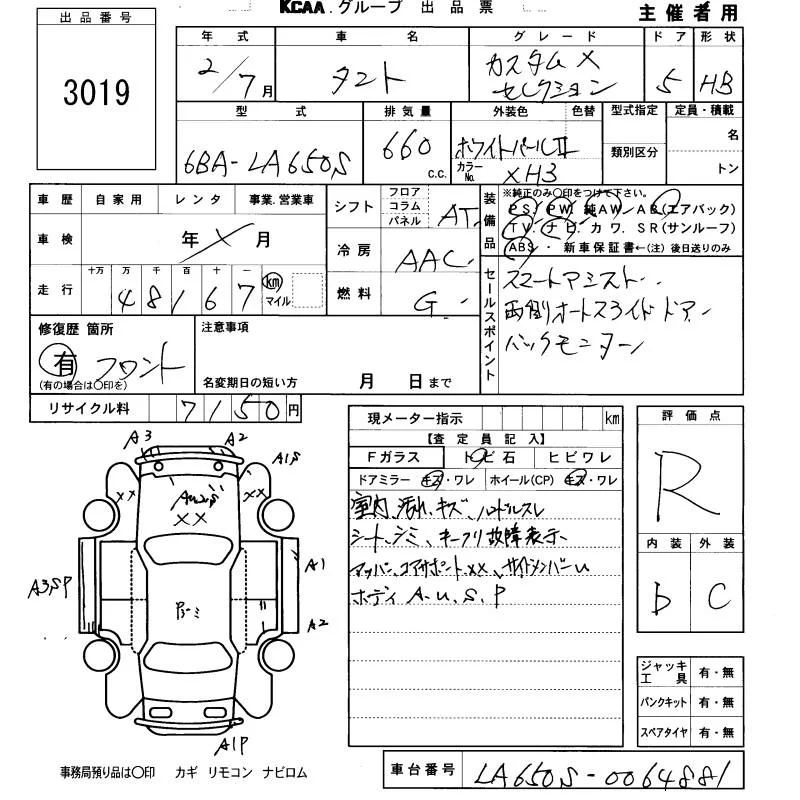 出品番号
3019
KCAA.グループ 出品票
主催者用
年式
2/7月
車名
タント
グレード
カスタムX
セレクション
ドア
5
形状
HB
型式
6BA-LA650S
排気量
660
c.c.
外装色
色替
ホワイトパールII
カラーNo.
XH3
型式指定
類別区分
定員・積載
名
トン
車歴
自家用
レンタ
事業.営業車
車検
年 月
走行
十万 万 千 百 十 一
48167
km
マイル
シフト
フロア
コラム
パネル
AT
冷房
AAC
燃料
G
装備品
※純正のみ〇印をつけて下さい。
PS. PW. 純AW/ AB(エアバック)
TV. ナビ. カワ. SR(サンルーフ)
ABS・ 新車保証書←(注)後日送りのみ
セールスポイント
スマートアシスト
両側オートスライドドア
バックモニター
修復歴 箇所
有 フロント
(有の場合は〇印を)
注意事項
名変期日の短い方 月 日まで
リサイクル料
7150円
現メーター指示
km
【査定員記入】
Fガラス
トビ石
ヒビワレ
ドアミラー
キズ・ワレ
ホイール(CP)
キズ・ワレ
室内、汚れ、キズ、ハンドルスレ
シート、シミ、キーフリ故障表示
アッパー、コアサポートxx、サイドメンバーu
ボディ A.u.S.P
評価点
R
内装
外装
b
C
ジャッキ
工具
有・無
パンクキット
有・無
スペアタイヤ
有・無
A3
A2
A1S
xx
xx
xx
A3SP
A1
A2
A1P
事務局預り品は〇印 カギ リモコン ナビロム
車台番号
LA650S-0064881